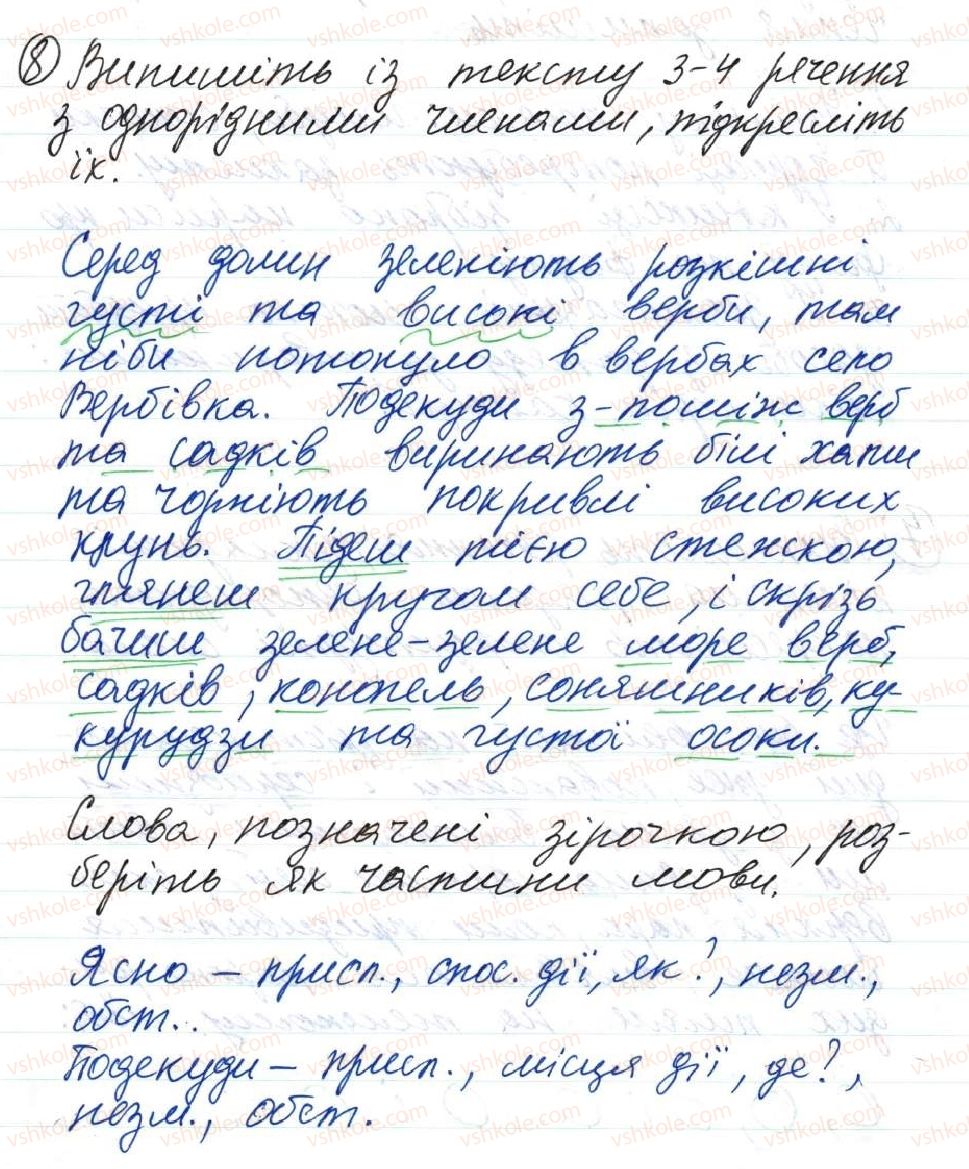 8 Випишіть із тексту 3-4 речення
з однорідними членами, підкресліть
їх.
Серед долин зеленіють розкішні
густі та високі верби, там
ніби потонуло в вербах село
Вербівка. Подекуди з-поміж верб
та садків виринають білі хати
та чорніють покривлі високих
клунь. Підеш тією стежкою,
глянеш кругом себе, і скрізь
бачиш зелене-зелене море верб,
садків, конопель, соняшників, ку-
курудзи та густої осоки.
Слова, позначені зірочкою, роз-
беріть як частини мови.
Ясно – присл., спос. дії, як?, незм.,
обст..
Подекуди – присл., місця дії, де?,
незм., обст.